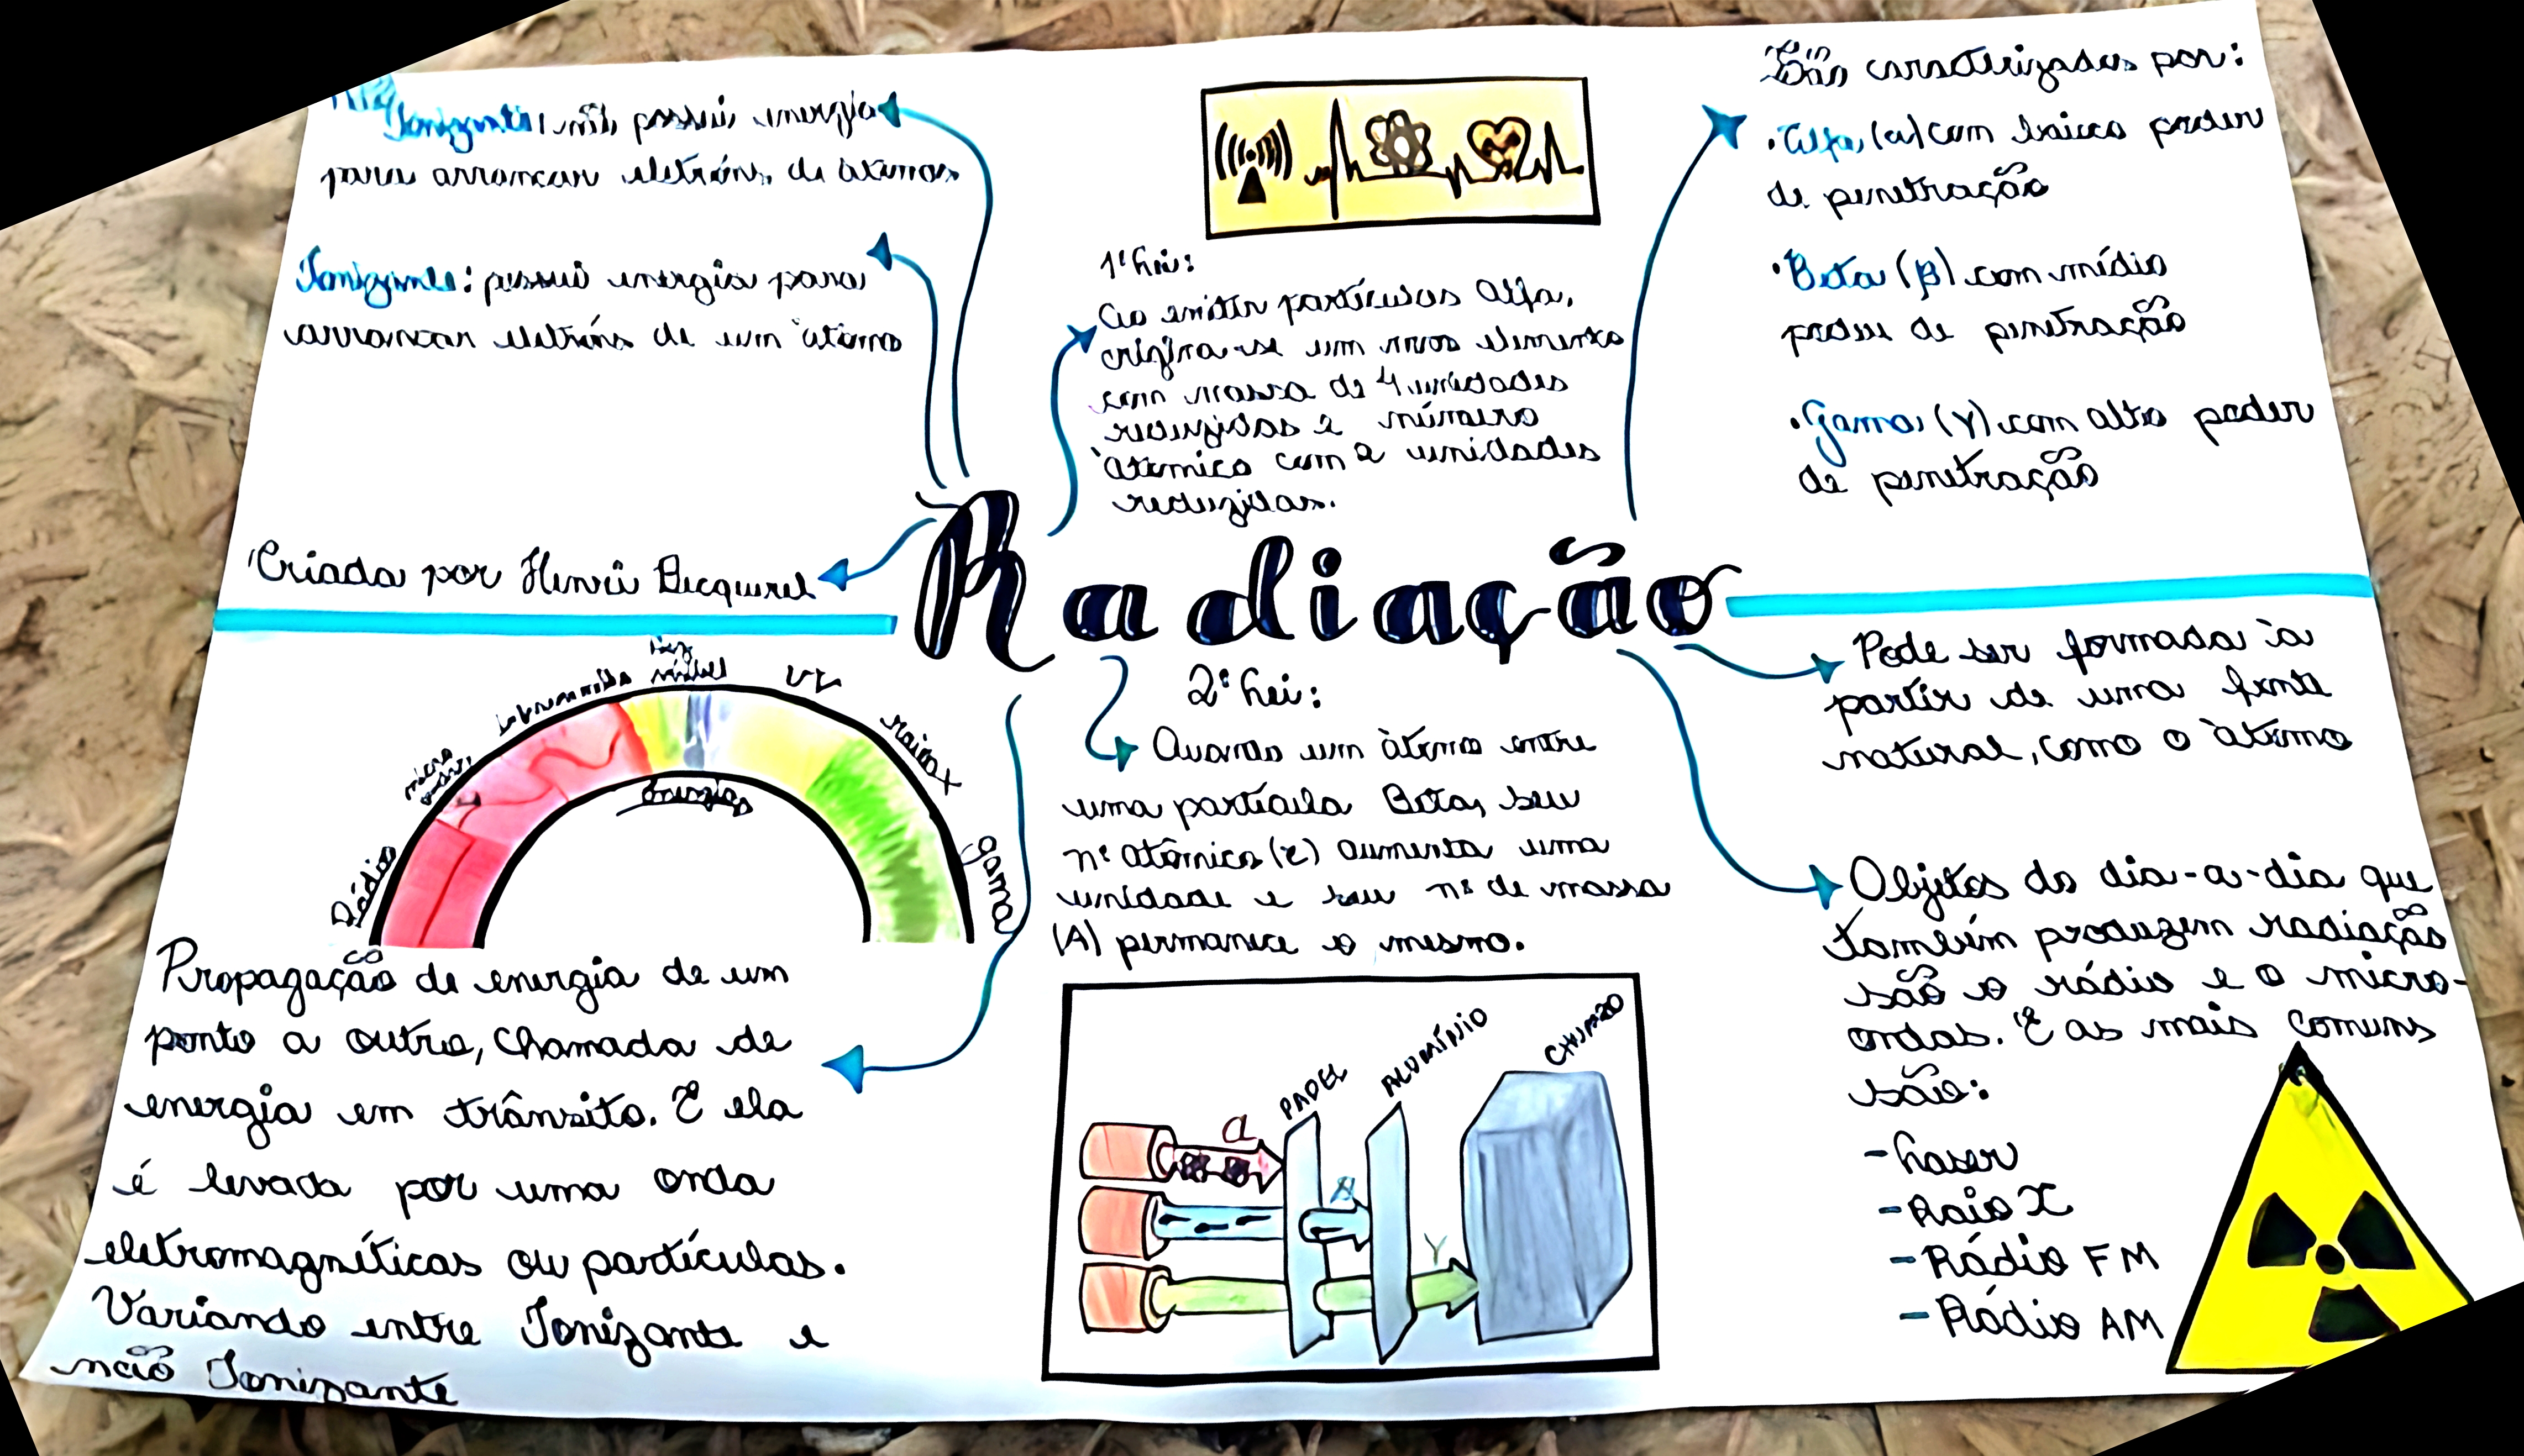 Ionizante: não possui energia
para arrancar eletróns de átomos
Ionizante: possui energia para
arrancar eletróns de um àtomo
Criada por Henri Becquerel
1ª Lei:
Ao emitir partículas Alfa,
origina-se um novo elemento
com massa de 4 unidades
reduzidas e número
àtomico com 2 unidades
reduzidas.
São caracterizadas por:
•Alfa (α) com baixo poder
de penetração
•Beta (β) com médio
poder de penetração
•Gama (γ) com alto poder
de penetração
Radiação
luz
visível
UV
raio x
gama
micro
ondas
Rádio
Energia
Propagação de energia de um
ponto a outro, chamada de
energia em trânsito. E ela
é levada por uma onda
eletromagnéticas ou partículas.
Variando entre Ionizante e
não Ionizante
2ª Lei:
Quando um àtomo emite
uma partícula Beta, seu
nº atômico (z) aumenta uma
unidade e seu nº de massa
(A) permanece o mesmo.
PAPEL
ALUMÍNIO
CHUMBO
α
β
γ
Pode ser formada à
partir de uma fonte
natural, como o àtomo
Objetos do dia-a-dia que
também produzem radiação
são o rádio e o micro-
ondas. E as mais comuns
são:
-Laser
-Raio X
-Rádio FM
-Rádio AM